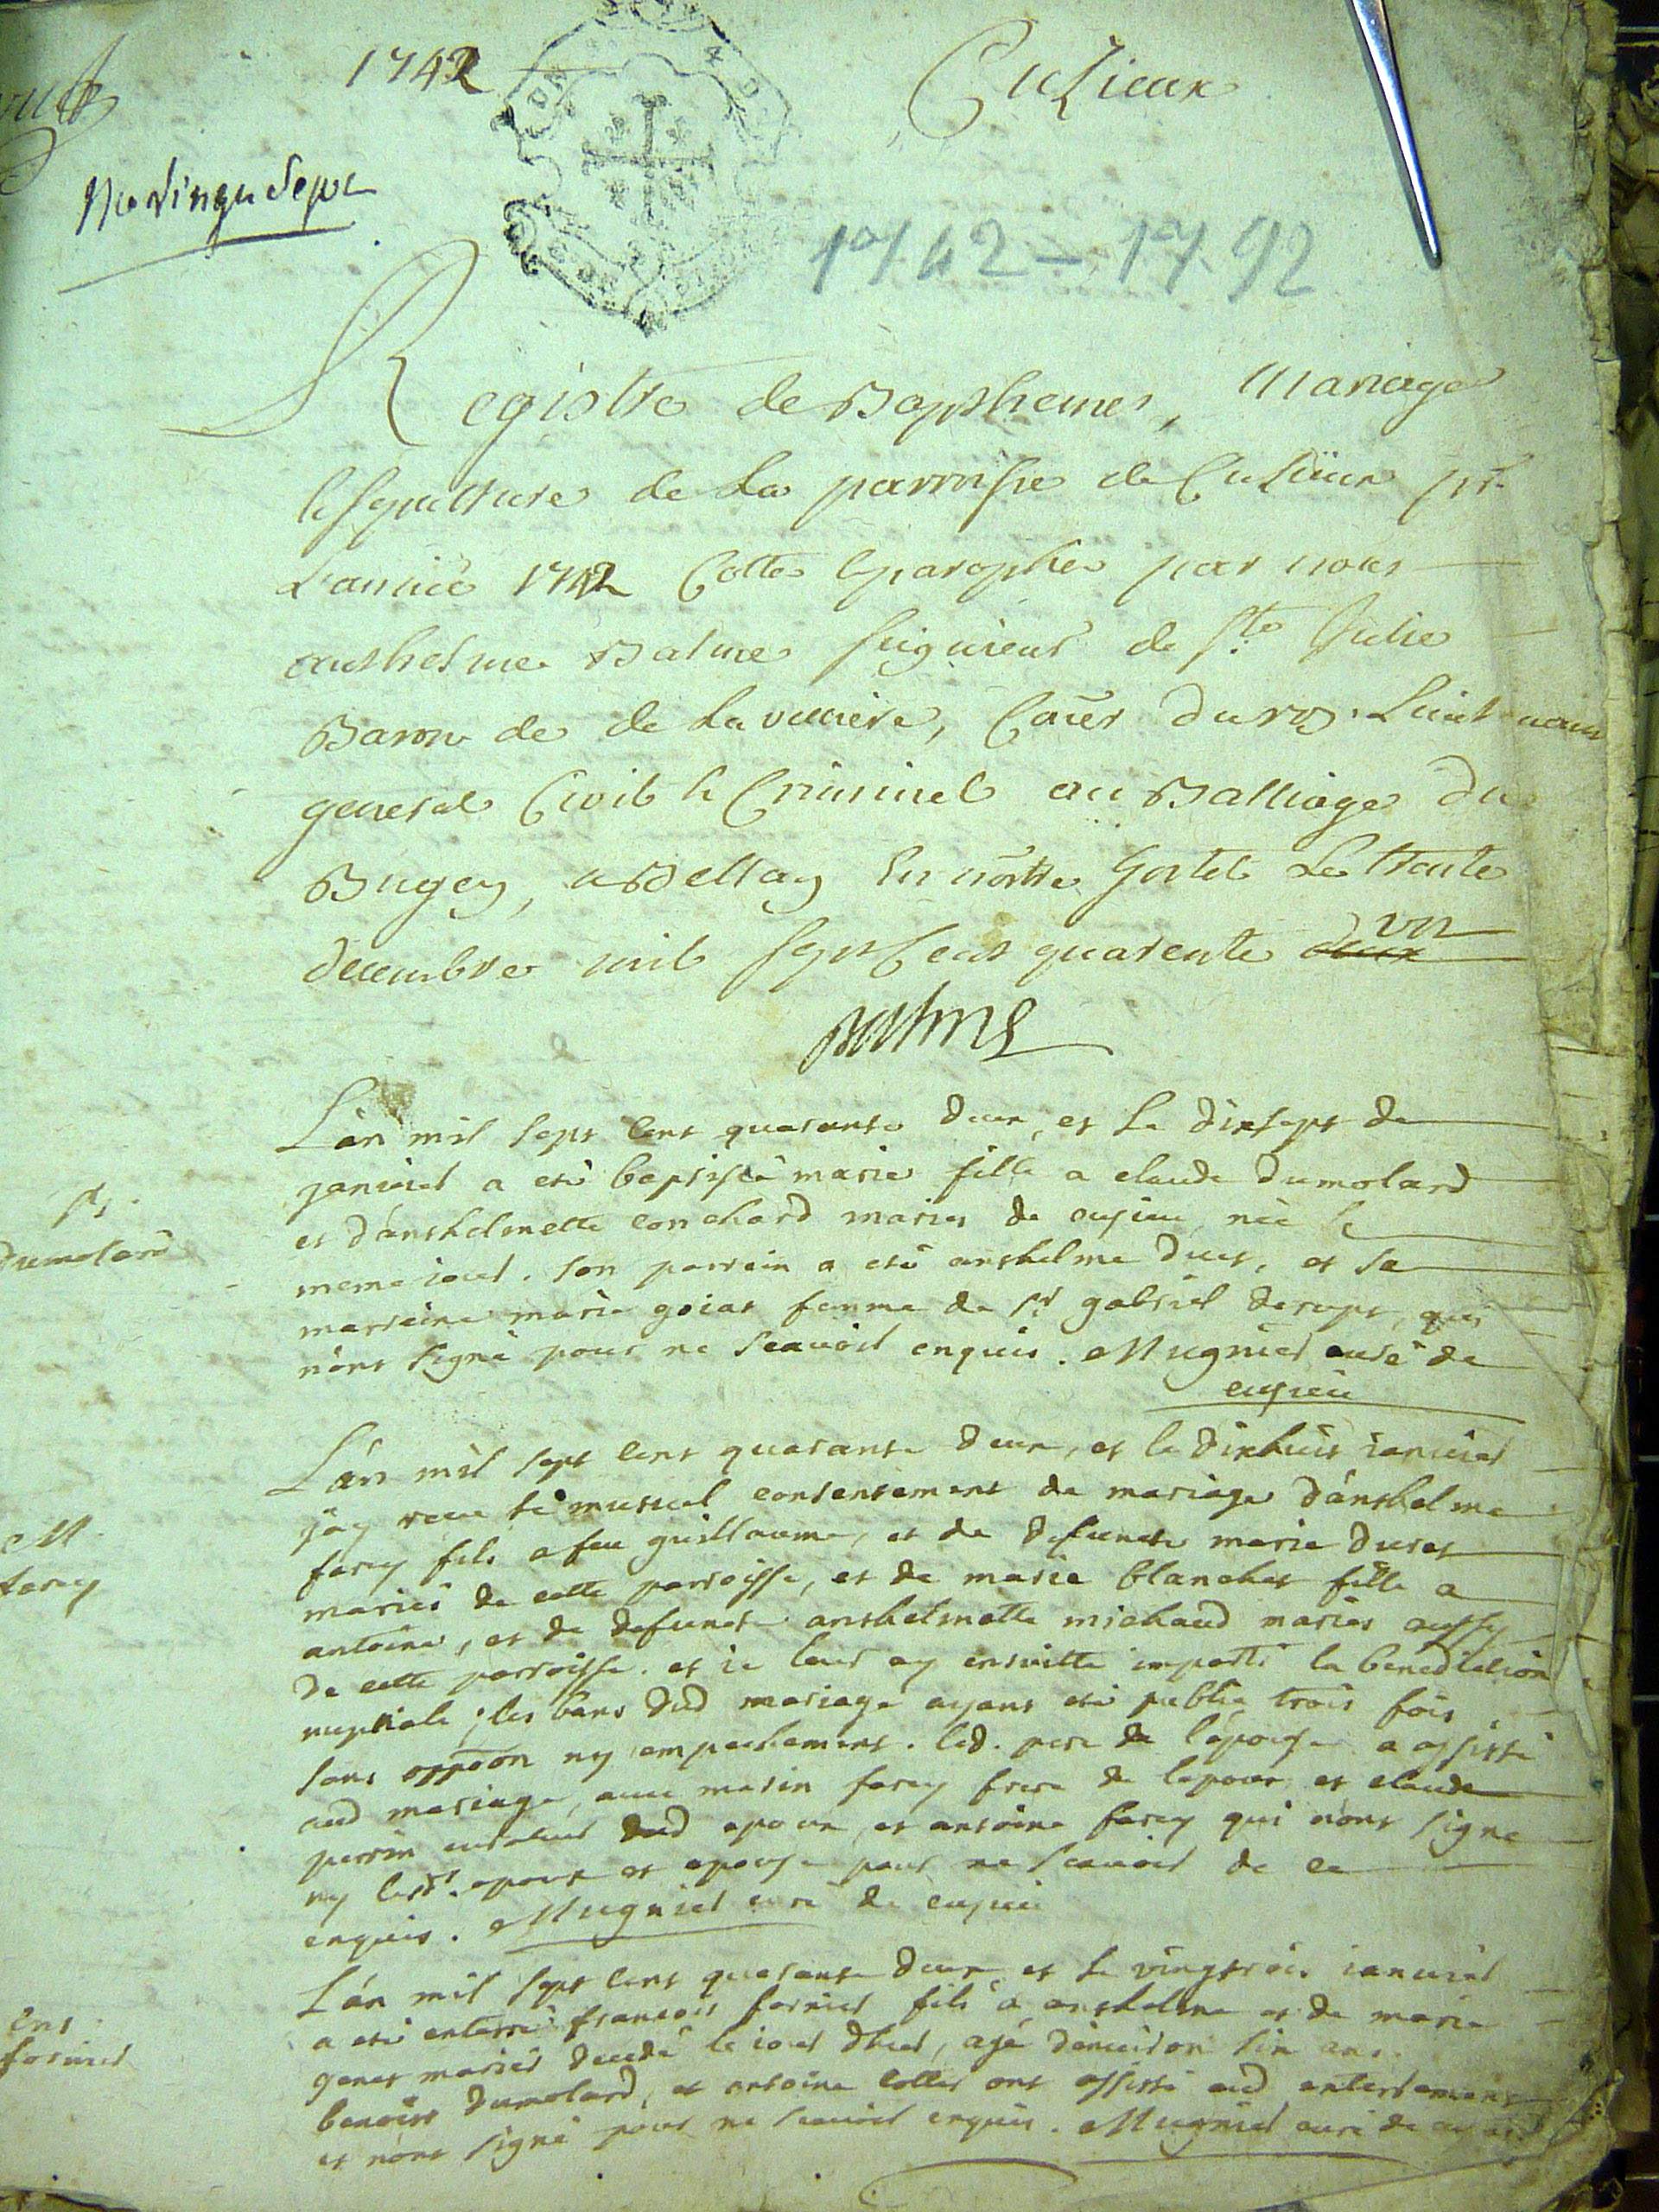 1742
Cuzieux
No vingt sept
1742 - 1792
Registre de Bapthemes, Mariage
et sepulture de La parroisse de Cuzieux pr.
L'année 1742 Cotté et paraphé par nous
anthelme Balme seigneur de Ste Julie
Baron de de La velliere, Coner du roy Lieutenant
general Civil et Criminel au Balliage du
Bugey, a Bellay En nôtre hostel Le trente
decembre mil sept Cent quarente deux un
Balme
L'an mil sept cent quarante deux, et le dixsept de
janvier a eté baptisée marie fille a claude Dumolard
et d'anthelmette conchard mariés de cusieu, née le
meme iour. son parrein a eté anthelme Duer, et sa
marreine marie goiat femme de sr gabriel derupt, qui
n'ont signé pour ne scavoir enquis. Mugnier curé de
cusieu
B.
Dumolard
L'an mil sept cent quarante deux, et le dixhuit ianvier
j'ay receu le mutuel consentement de mariage d'anthelme
farcy fils a feu guillaume, et de defuncte marie Duret
mariés de cette parroisse, et de marie blanchet fille a
antoine, et de defuncte anthelmette michaud mariés aussy
de cette parroisse. et ie leur ay ensuitte imparti la benediction
nuptiale; les bans dud mariage ayans eté publié trois fois
sans oppôon ny empechement. led. pere de l'epouse a assisté
aud mariage, avec marin farcy frere de l'epoux et claude
perrin curateur dud epoux, et antoine farcy qui n'ont signé
ny lesd. epoux et epouse pour ne scavoir de ce
enquis. Mugnier curé de cusieu
M.
farcy
L'an mil sept cent quarante deux et le vingtrois ianvier
a eté enterré francois fornier fils a anthelme et de marie
genet mariés decedé le iour d'hier, agé d'environ six ans.
benoist Dumolard, et antoine collet ont assisté aud enterrement
et n'ont signé pour ne scavoir enquis. Mugnier curé de cusieu
Ent.
fornier